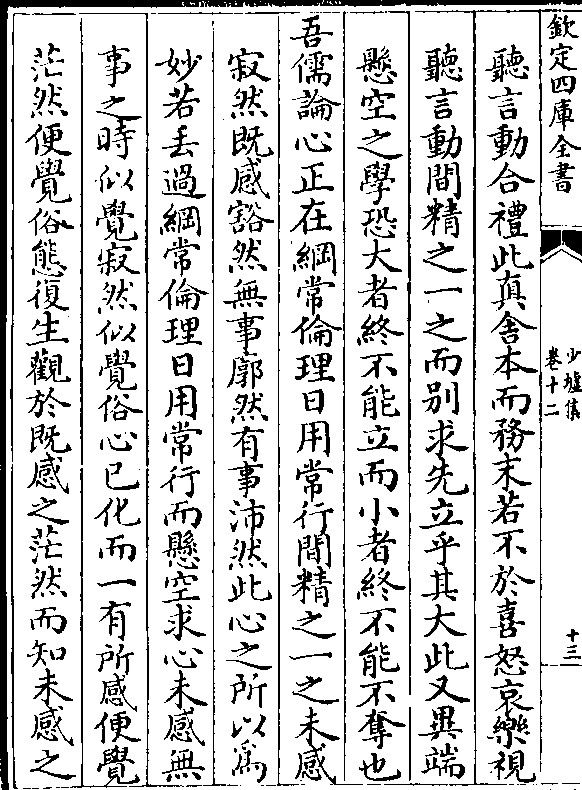 欽定四庫全書
少墟集
卷十二
十三
聽言動合禮此真舍本而務末若不於喜怒哀樂視
聽言動間精之一之而别求先立乎其大此又異端
懸空之學恐大者終不能立而小者終不能不奪也
吾儒論心正在綱常倫理日用常行間精之一之未感
寂然既感豁然無事廓然有事沛然此心之所以為
妙若丢過綱常倫理日用常行而懸空求心未感無
事之時似覺寂然似覺俗心已化而一有所感便覺
茫然便覺俗態復生觀於既感之茫然而知未感之